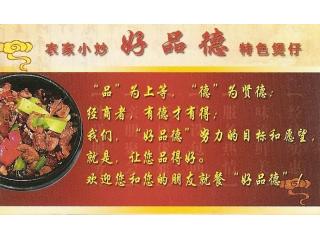 农家小炒 好品德 特色煲仔
“品”为上等，“德”为贤德；
经商者，有德才有得；
我们，“好品德”努力的目标和愿望，
就是，让您品得好。
欢迎您和您的朋友就餐“好品德”！